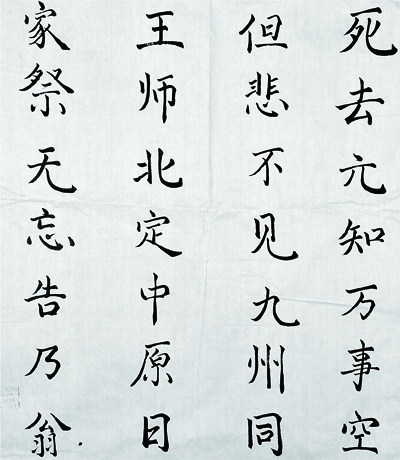 死去亓知万事空
但悲不见九州同
王师北定中原日
家祭无忘告乃翁